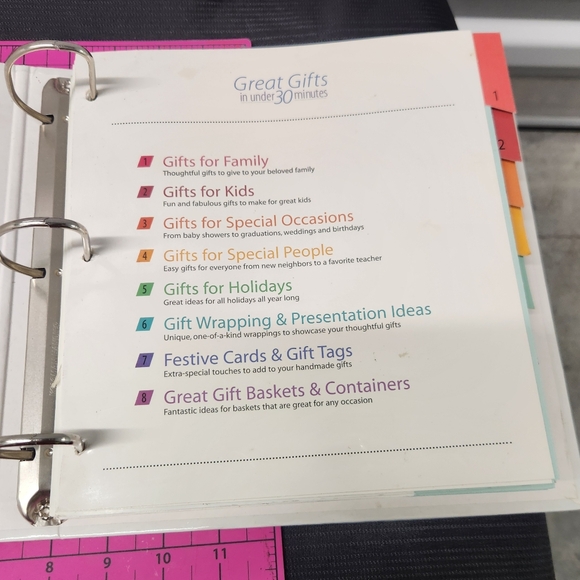 Great Gifts
in under 30 minutes
1 Gifts for Family
Thoughtful gifts to give to your beloved family
2 Gifts for Kids
Fun and fabulous gifts to make for great kids
3 Gifts for Special Occasions
From baby showers to graduations, weddings and birthdays
4 Gifts for Special People
Easy gifts for everyone from new neighbors to a favorite teacher
5 Gifts for Holidays
Great ideas for all holidays all year long
6 Gift Wrapping & Presentation Ideas
Unique, one-of-a-kind wrappings to showcase your thoughtful gifts
7 Festive Cards & Gift Tags
Extra-special touches to add to your handmade gifts
8 Great Gift Baskets & Containers
Fantastic ideas for baskets that are great for any occasion
1
2
8 9 10 11